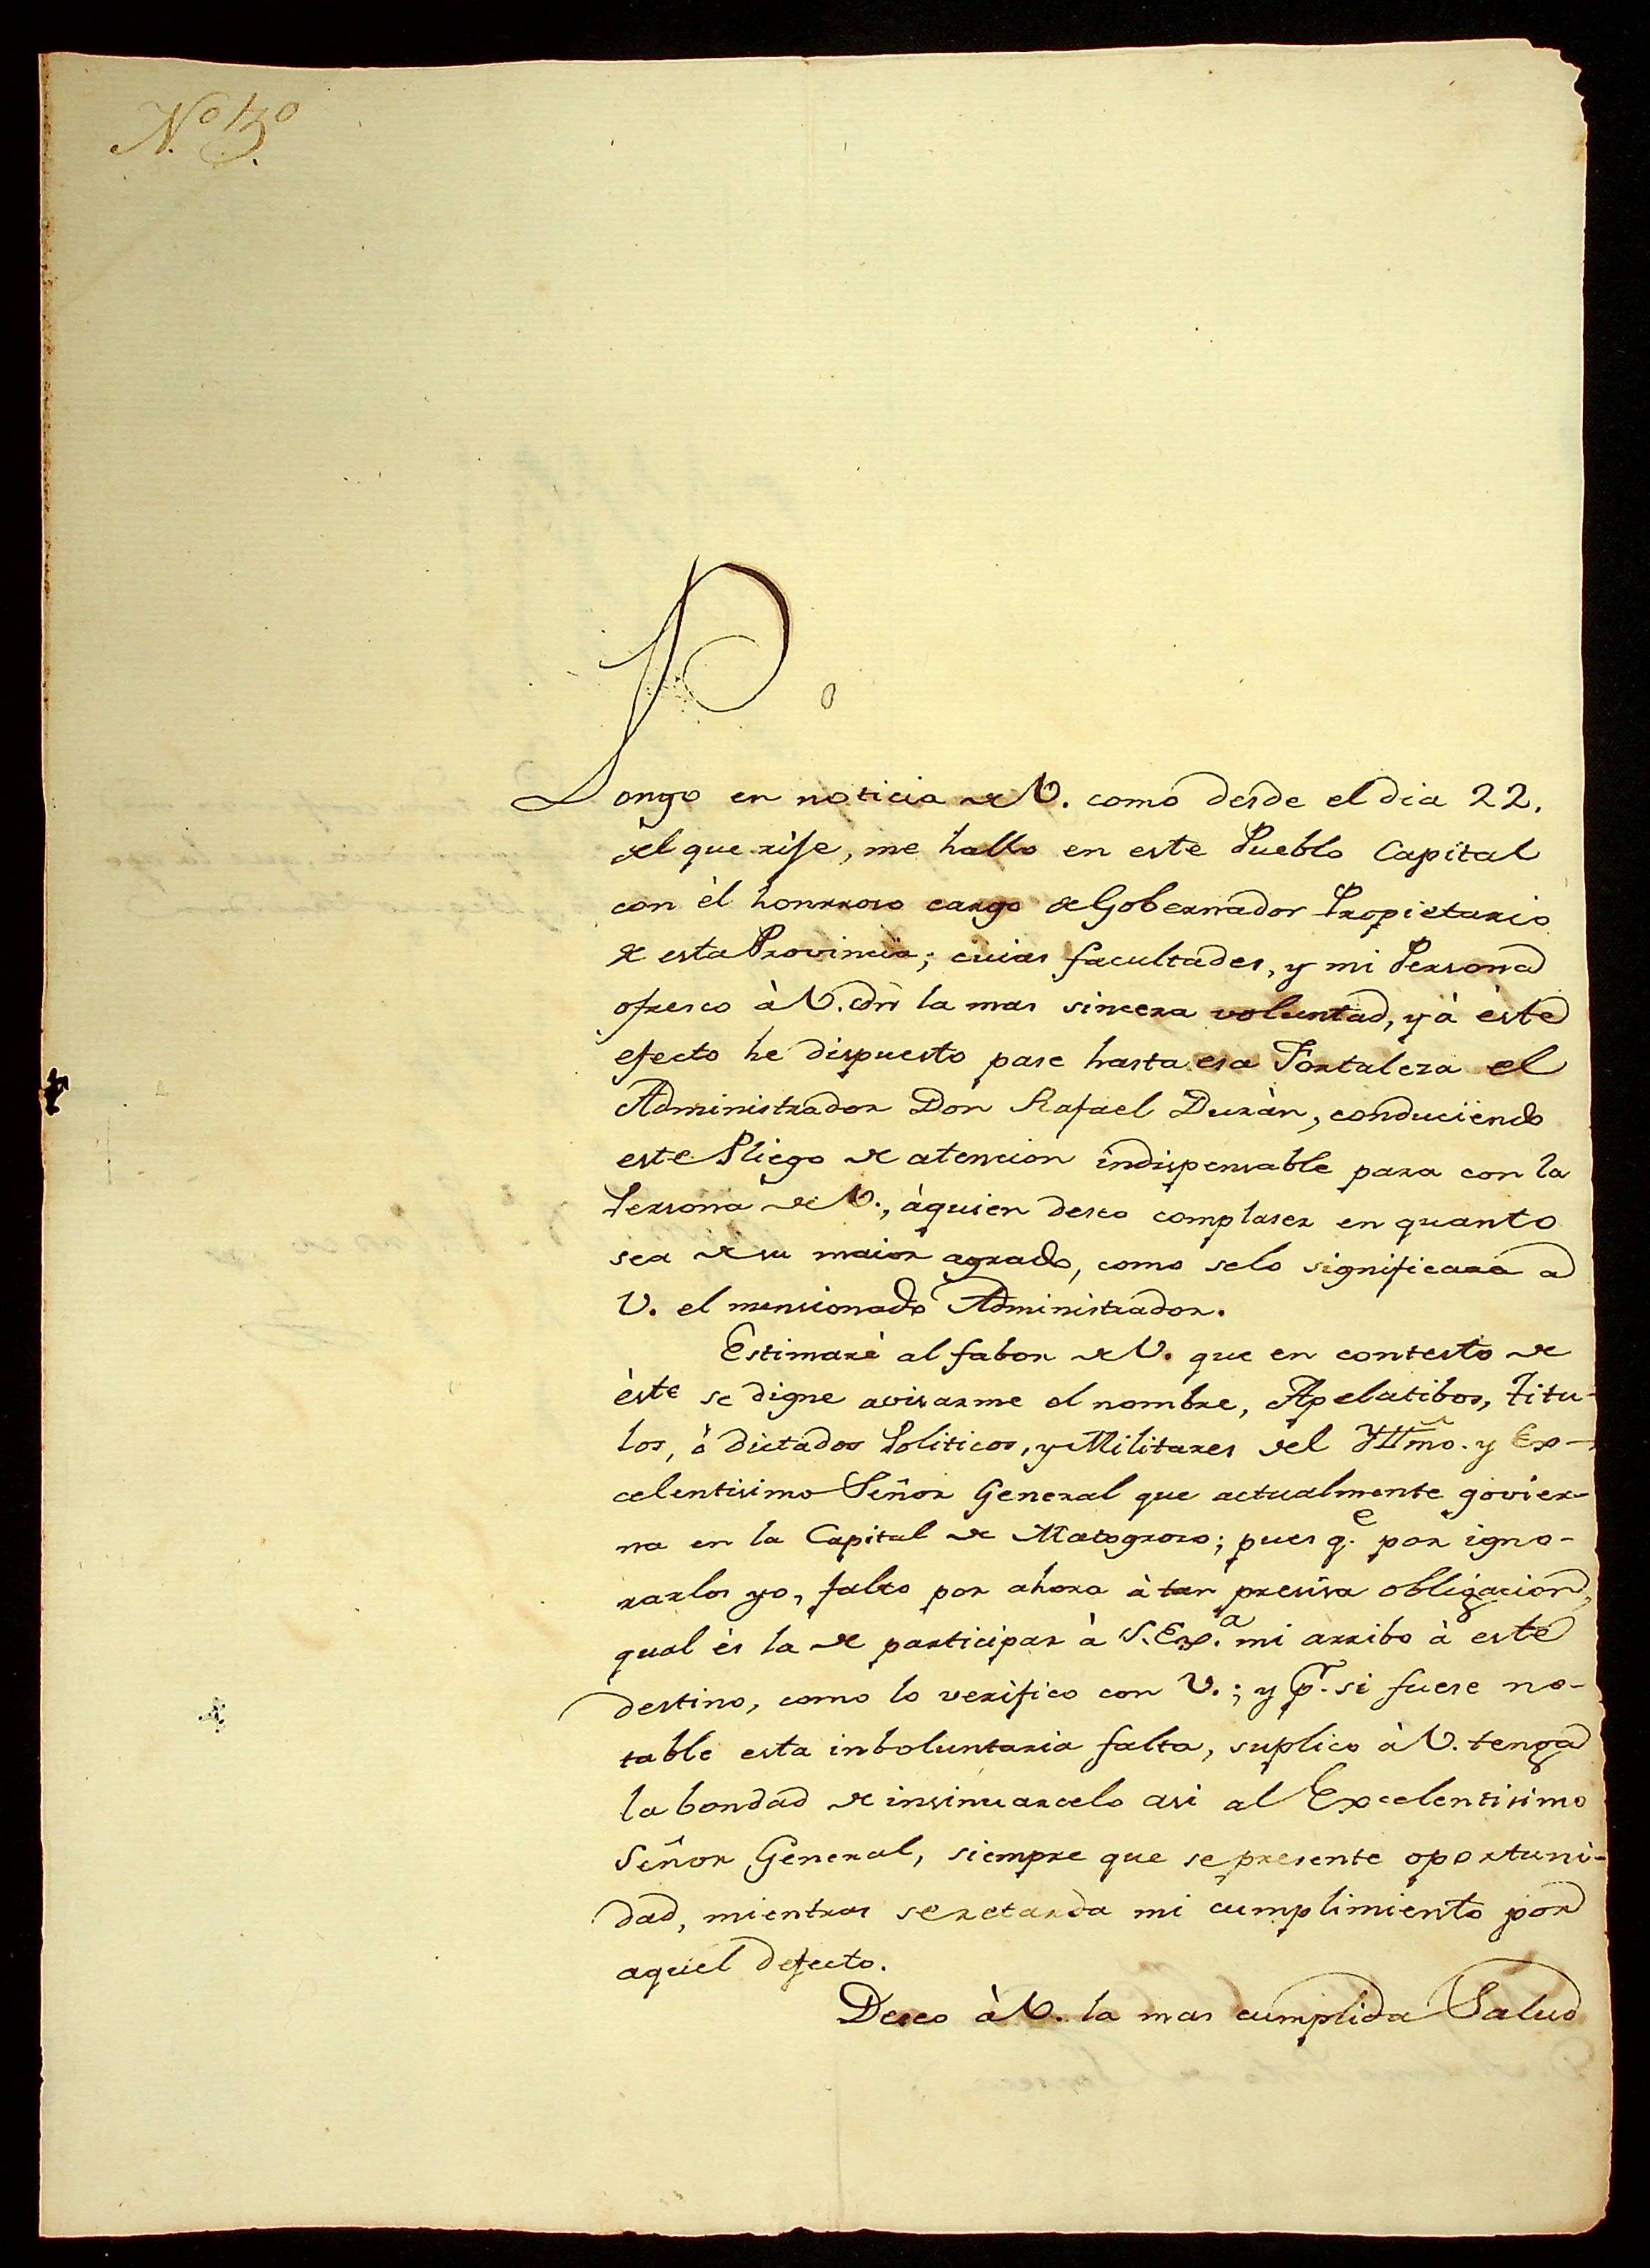 N.º 13.º
Pongo en noticia de V. como desde el dia 22.
del que rije, me hallo en este Pueblo Capital
con èl honrroso cargo de Gobernador Propietario
de esta Provincia; cuias facultades, y mi Persona
ofresco à V. con la mas sincera voluntad, y à èste
efecto he dispuesto pase hasta esa Fortaleza el
Administrador Don Rafael Duràn, conduciendo
este Pliego de atencion indispensable para con la
Persona de V., àquien deseo complaser en quanto
sea de su maior agrado, como selo significara a
V. el mensionado Administrador.
Estimarè al fabor de V. que en contesto de
èste se digne avisarme el nombre, Apelatibos, titu-
los, ò dictados Politicos, y Militares del Yllmo. y Ex-
celentisimo Señor General que actualmente govier-
na en la Capital de Matogroso; pues q.e por igno-
rarlos yo, falto por ahora à tan presisa obligacion,
qual ès la de participar à S. Ex.a mi arribo à este
destino, como lo verifico con V.; y p.r si fuese no-
table esta inboluntaria falta, suplico à V. tenga
la bondad de insinuarcelo asi al Excelentisimo
Señor General, siempre que se presente oportuni-
dad, mientras se retarda mi cumplimiento por
aquel defecto.
Deseo à V. la mas cumplida Salud